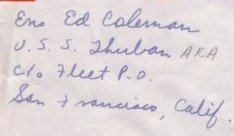 Ens Ed Coleman
U.S.S. Thuban AKA
c/o Fleet P.O.
San Francisco, Calif.